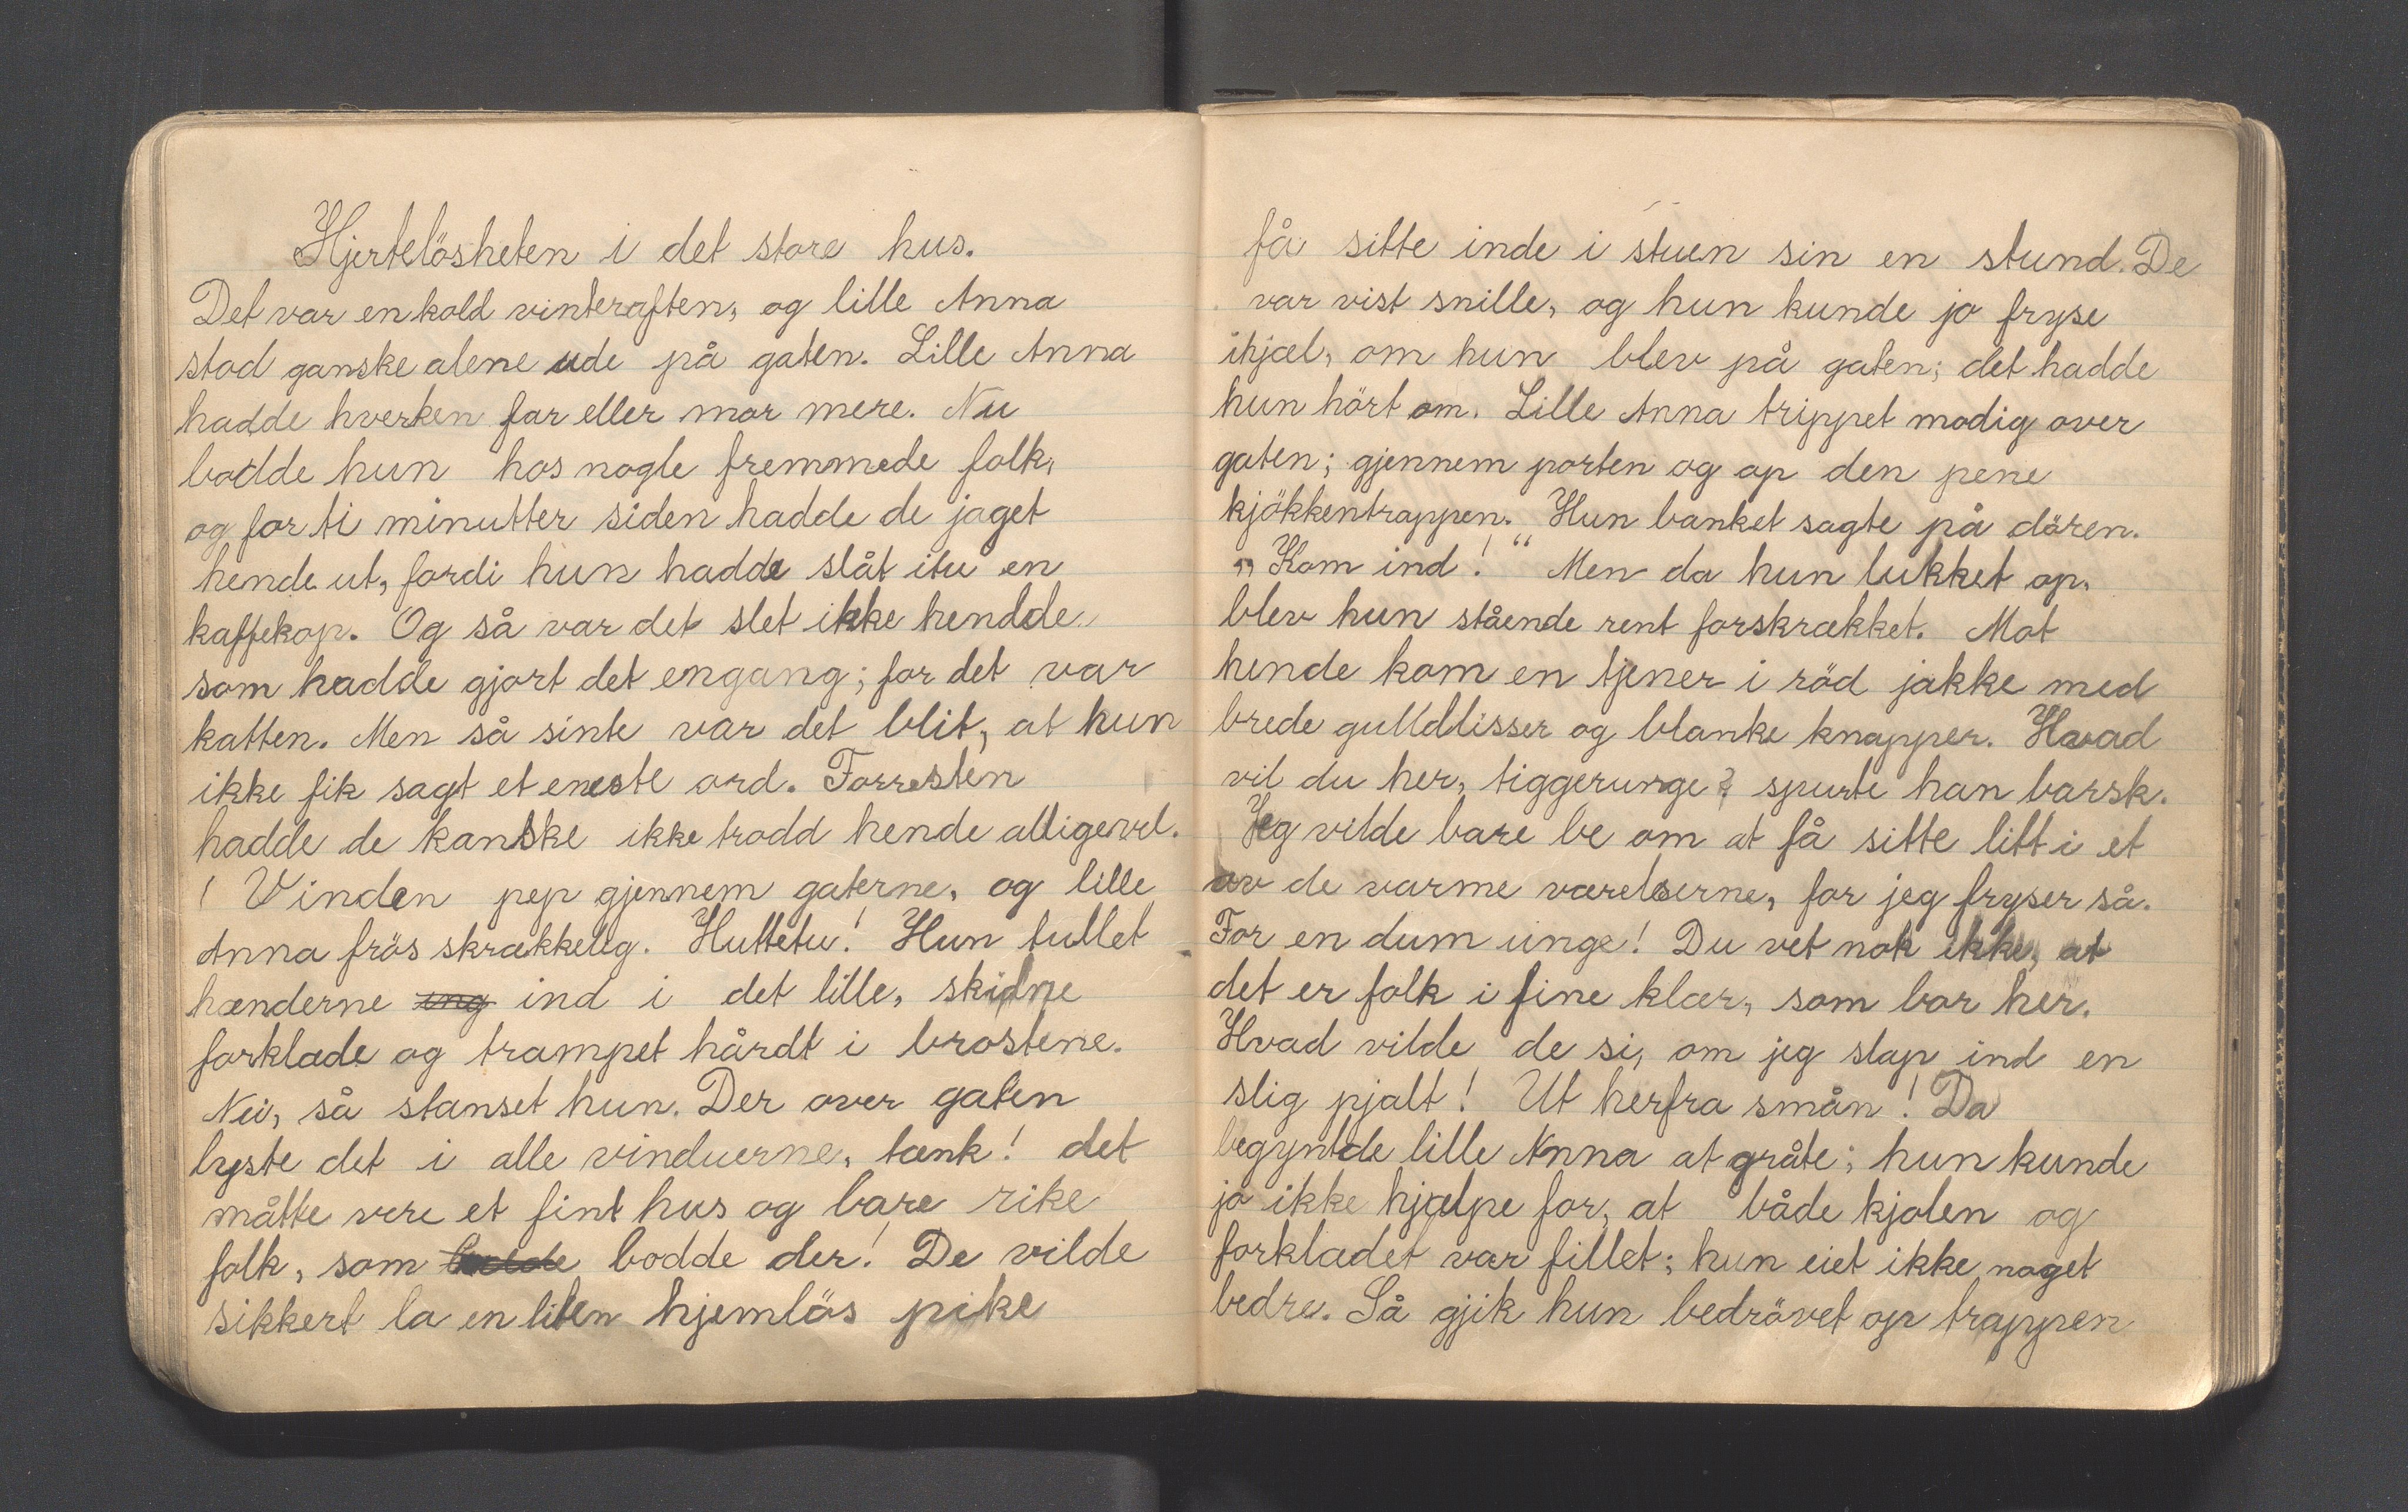 Hjertelösheten i det store hus.
Det var en kold vinteraften, og lille Anna
stod ganske alene ude på gaten. Lille Anna
hadde hverken far eller mor mere. Nu
bodde hun hos nogle fremmede folk,
og for ti minutter siden hadde de jaget
hende ut, fordi hun hadde slåt itu en
kaffekop. Og så var det slet ikke hendde
som hadde gjort det engang; for det var
katten. Men så sinte var det blit, at hun
ikke fik sagt et eneste ord. Forresten
hadde de kanske ikke trodd hende alligevel.
Vinden pep gjennem gaterne, og lille
Anna frös skrækkelig. Huttetu! Hun tullet
hænderne ing ind i det lille, skidne
forklæde og trampet hårdt i brostene.
Nei, så stanset hun. Der over gaten
lyste det i alle vinduerne, tænk! det
måtte vere et fint hus og bare rike
folk, som bodde der! De vilde
sikkert la en liten hjemlös pike
få sitte inde i stuen sin en stund. De
var vist snille, og hun kunde jo fryse
ihjæl, om hun blev på gaten; det hadde
hun hört om. Lille Anna trippet modig over
gaten; gjennem porten og op den pene
kjökkentrappen. Hun banket sagte på dören.
„Kom ind!“ Men da hun lukket op,
blev hun stående rent forskrækket. Mot
hende kom en tjener i röd jakke med
brede gulldlisser og blanke knapper. Hvad
vil du her, tiggerunge? spurte han barsk.
Jeg vilde bare be om at få sitte litt i et
av de varme værelserne, for jeg fryser så.
For en dum unge! Du vet nok ikke, at
det er folk i fine klær, som bor her.
Hvad vilde de si, om jeg slap ind en
slig pjalt! Ut herfra smån! Da
begyntde lille Anna at gråte; hun kunde
jo ikke hjælpe for, at både kjolen og
forklædet var fillet; hun eiet ikke noget
bedre. Så gjik hun bedrövet op trappen